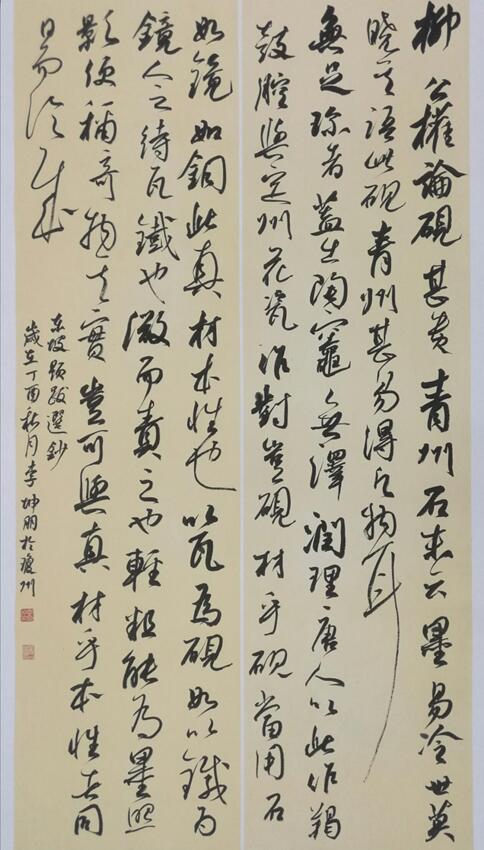 柳公權論硯甚貴青州石末云墨易冷世莫
曉其語此硯青州甚易得凡物耳
無足珍者蓋出陶竈無澤潤理唐人以此作羯
鼓腔與定州花瓷作對豈硯材乎硯當用石
如鏡如銅此真材本性也以瓦為硯如以鐵為
鏡人之待瓦鐵也微而責之也輕粗能為墨照
影便稱奇物其實豈可與真材乎本性者同
日而論哉
東坡題跋選鈔
歲在丁酉秋月李坤朋於